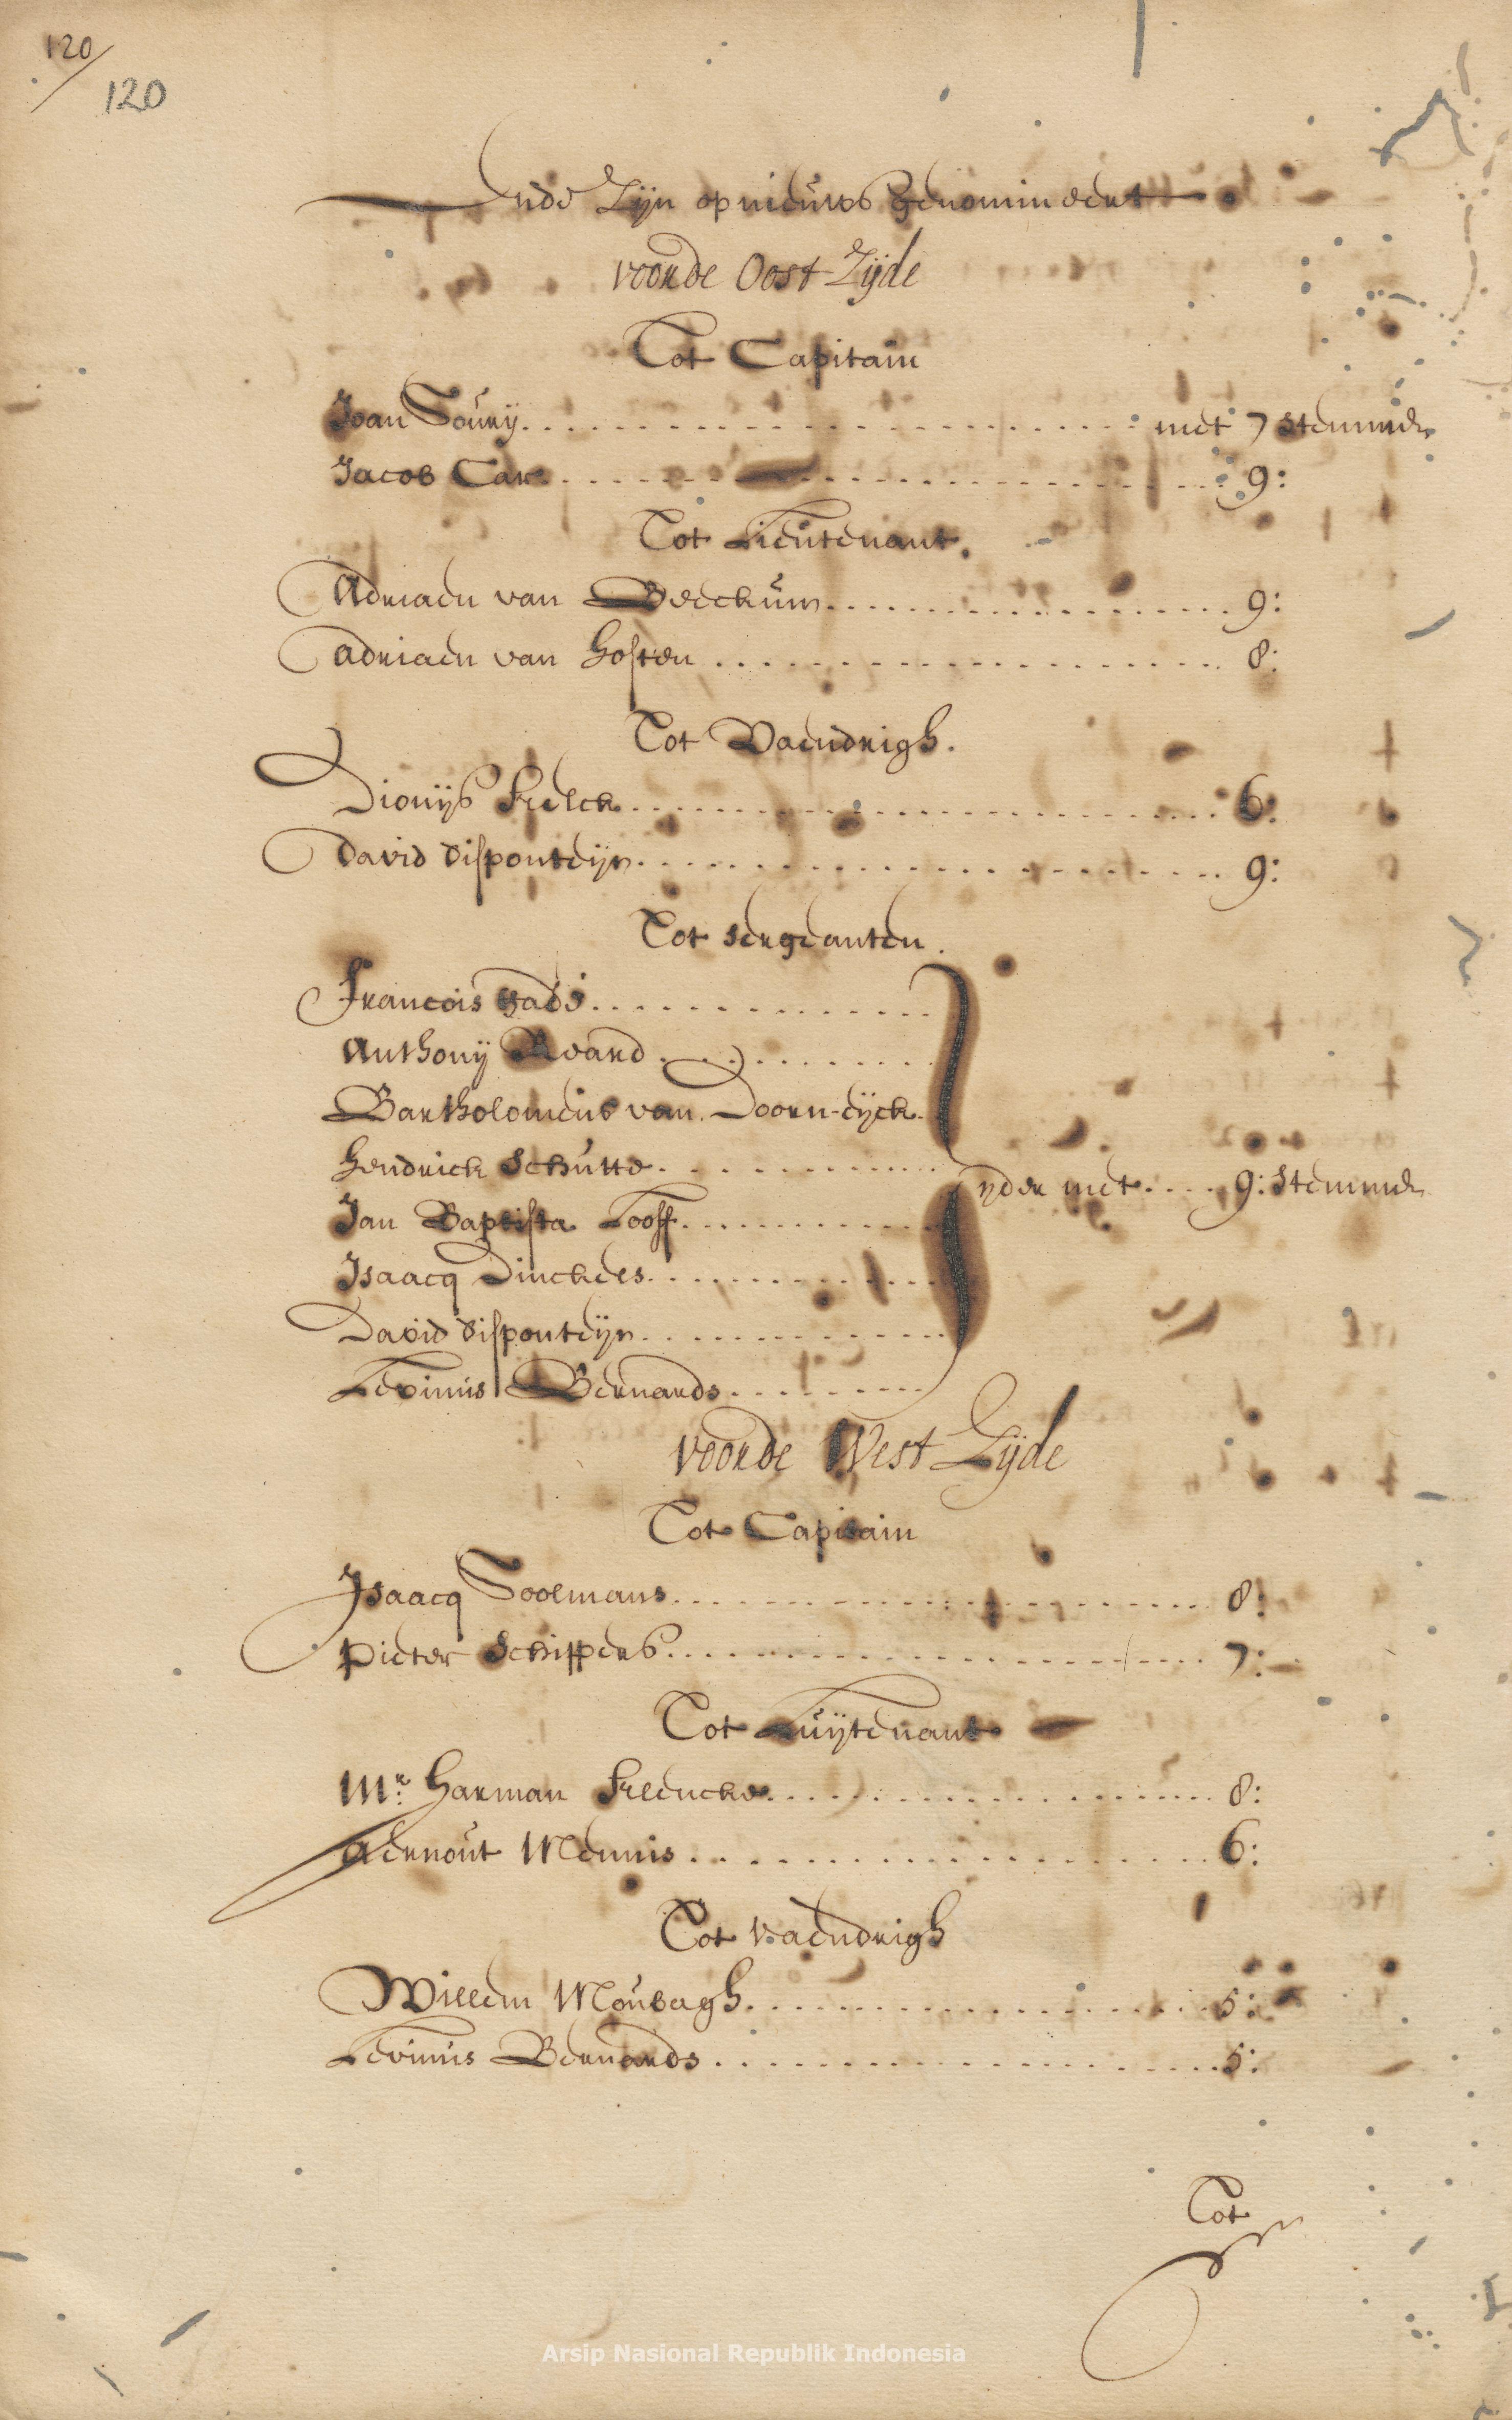 120/
120
Ende Zijn op nieuws genomineert
voorde Oost Zijde
Tot Capitain
Joan Soury met 7 stemmen
Jacob Car 9:
Tot Lieutenant.
Adriaen van Beeckum 9:
Adriaen van Hosten 8:
Tot Vaendrigh.
Dionijs 6:
David Disponteijn 9:
Tot sergeanten.
Francois
Anthonij
Bartholomeus van Doorn-eijck
Hendrick Schutte
Jan Baptista Looff
ijder met 9: stemmen
Isaacq Dinckels
David Disponteijn
Levinus Bernards
voorde West Zijde
Tot Capitain
Isaacq Soolmans 8:
Pieter Schippers 7:
Tot Luijtenant
Mr: Harman Klencke 8:
Aernout Mennis 6:
Tot vaendrigh
Willem Moubagh 5:
Levinus Bernards 5:
Tot
Arsip Nasional Republik Indonesia